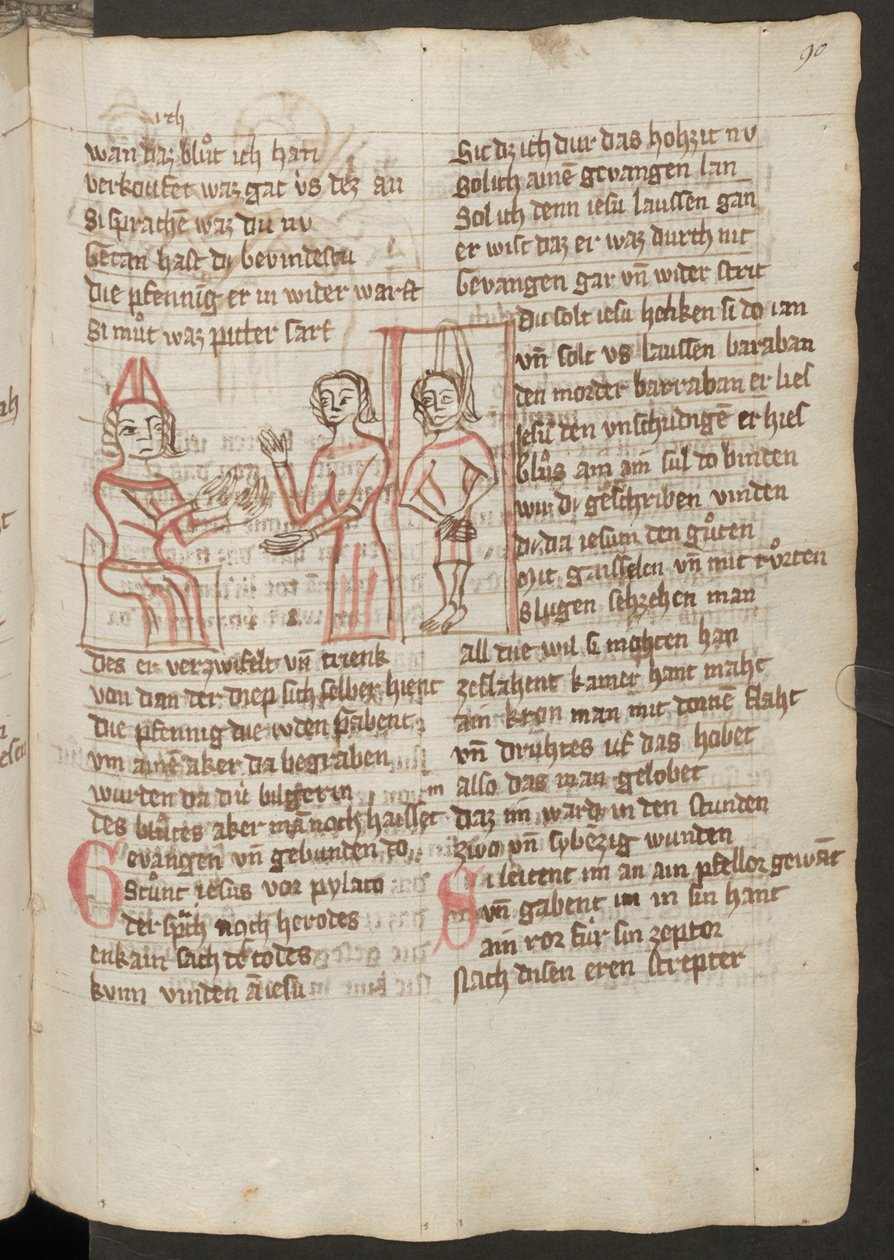 90
ich
wan daz blůt ich han
verkoufet waz gat v́s dez an
Si sprachē waz du nv
Getan hast dv bevindestu
Die pfennig er in wider warf
Si můt waz pitter sarf
Des er verzwifelt vn̄ trienk
von dan der diep sich selber hienk
Die pfennig die ivden gabent
vm ainē aker da begraben
wurden da dú bilgerin
Des blůtes aker mā noch haisset in
Gevangen vn̄ gebunden do
Stůnt iesus vor pylato
der sprach noch herodes
enkain sach des todes
kvnn vinden an iesu
Sit dz ich dur das hohzit nv
Sol ich ainē gevangen lan
Sol ich denn iesu laussen gan
er wist daz er waz durch nit
Gevangen gar vn̄ wider strit
Du solt iesu henken si do ian
vn̄ solt vs laussen baraban
den morder barraban er lies
Iesu den vnschuldigē er hies
blůs ain ain sul do binden
wir dz geschriben vinden
dz da iesum den gůten
Mit gaisseln vn̄ mit růten
Slugen sehzehen man
All die wil si mohten han
zeslahent kainer hant maht
ain kron man mit dornē flaht
vn̄ druhtes uf das hobet
also das man gelobet
daz im ward in den stunden
zwo vn̄ sybēzig wunden
Si leitent im an ain pfellor gewāt
vn̄ gabent im in sin hant
ain ror fúr sin zepter
Nach disen eren strepter